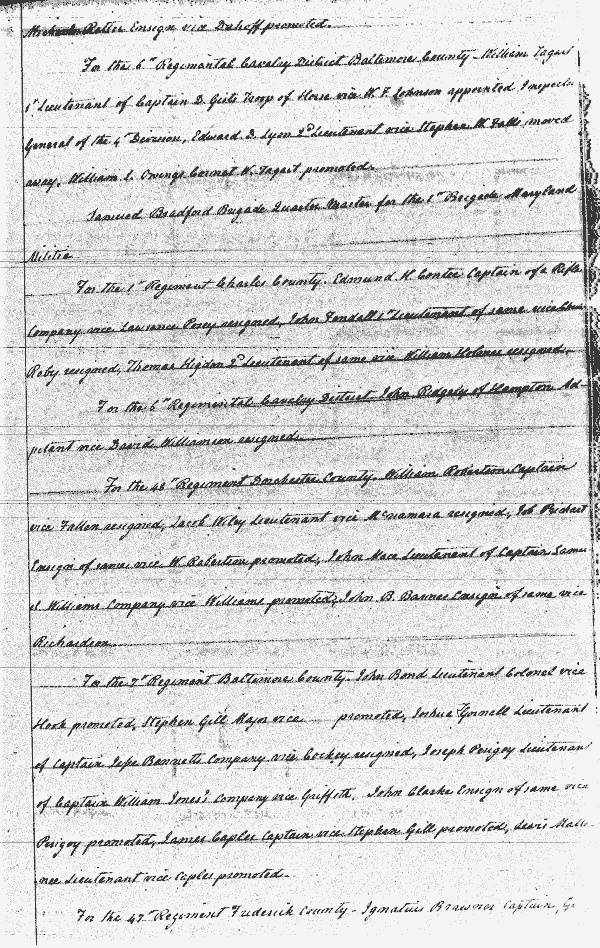 Ratler Ensign vice promoted.
For the 6th Regimental Cavalry District Baltimore County - William Tagart
1st Lieutenant of Captain D. Gists Troop of Horse vice W. F. Johnson appointed Inspector
General of the 4th Division, Edward D. Lyon 2d Lieutenant vice Stephen W. Falls moved
away, William C. Owings Cornet W. Tagart promoted.
Samuel Bradford Brigade Quarter Master for the 1st Brigade Maryland
Militia
For the 1st Regiment Charles County. Edmund H. Contee Captain of a Rifle
Company vice Lawrance Posey resigned, John Tendall 1st Lieutenant of same vice
Roby resigned, Thomas Higdon 2d Lieutenant of same vice William Holmes resigned.
For the 6th Regimental Cavalry District - John Ridgely of Hampton Ad-
jutant vice David Williamson resigned.
For the 48th Regiment Dorchester County. William Robertson Captain
vice Fallen resigned, Jacob Wiley Lieutenant vice McNamara resigned, Job
Ensign of same vice W. Robertson promoted, John Mace Lieutenant of Captain Samu
el Williams Company vice Williams promoted, John B. Barnes Ensign of same vice
Richardson.
For the 7th Regiment Baltimore County. John Bond Lieutenant Colonel vice
Hook promoted, Stephen Gill Major vice promoted, Joshua Gornell Lieutenant
of Captain Jesse Bennetts Company vice Cockey resigned, Joseph Peregoy Lieutenant
of Captain William Jones's Company vice Griffith, John Clarke Ensign of same vice
Perigoy promoted, James Caples Captain vice Stephen Gill promoted, Lewis Malo-
nee Lieutenant vice Caples promoted.
For the 47th Regiment Frederick County - Ignatius Brawner Captain,